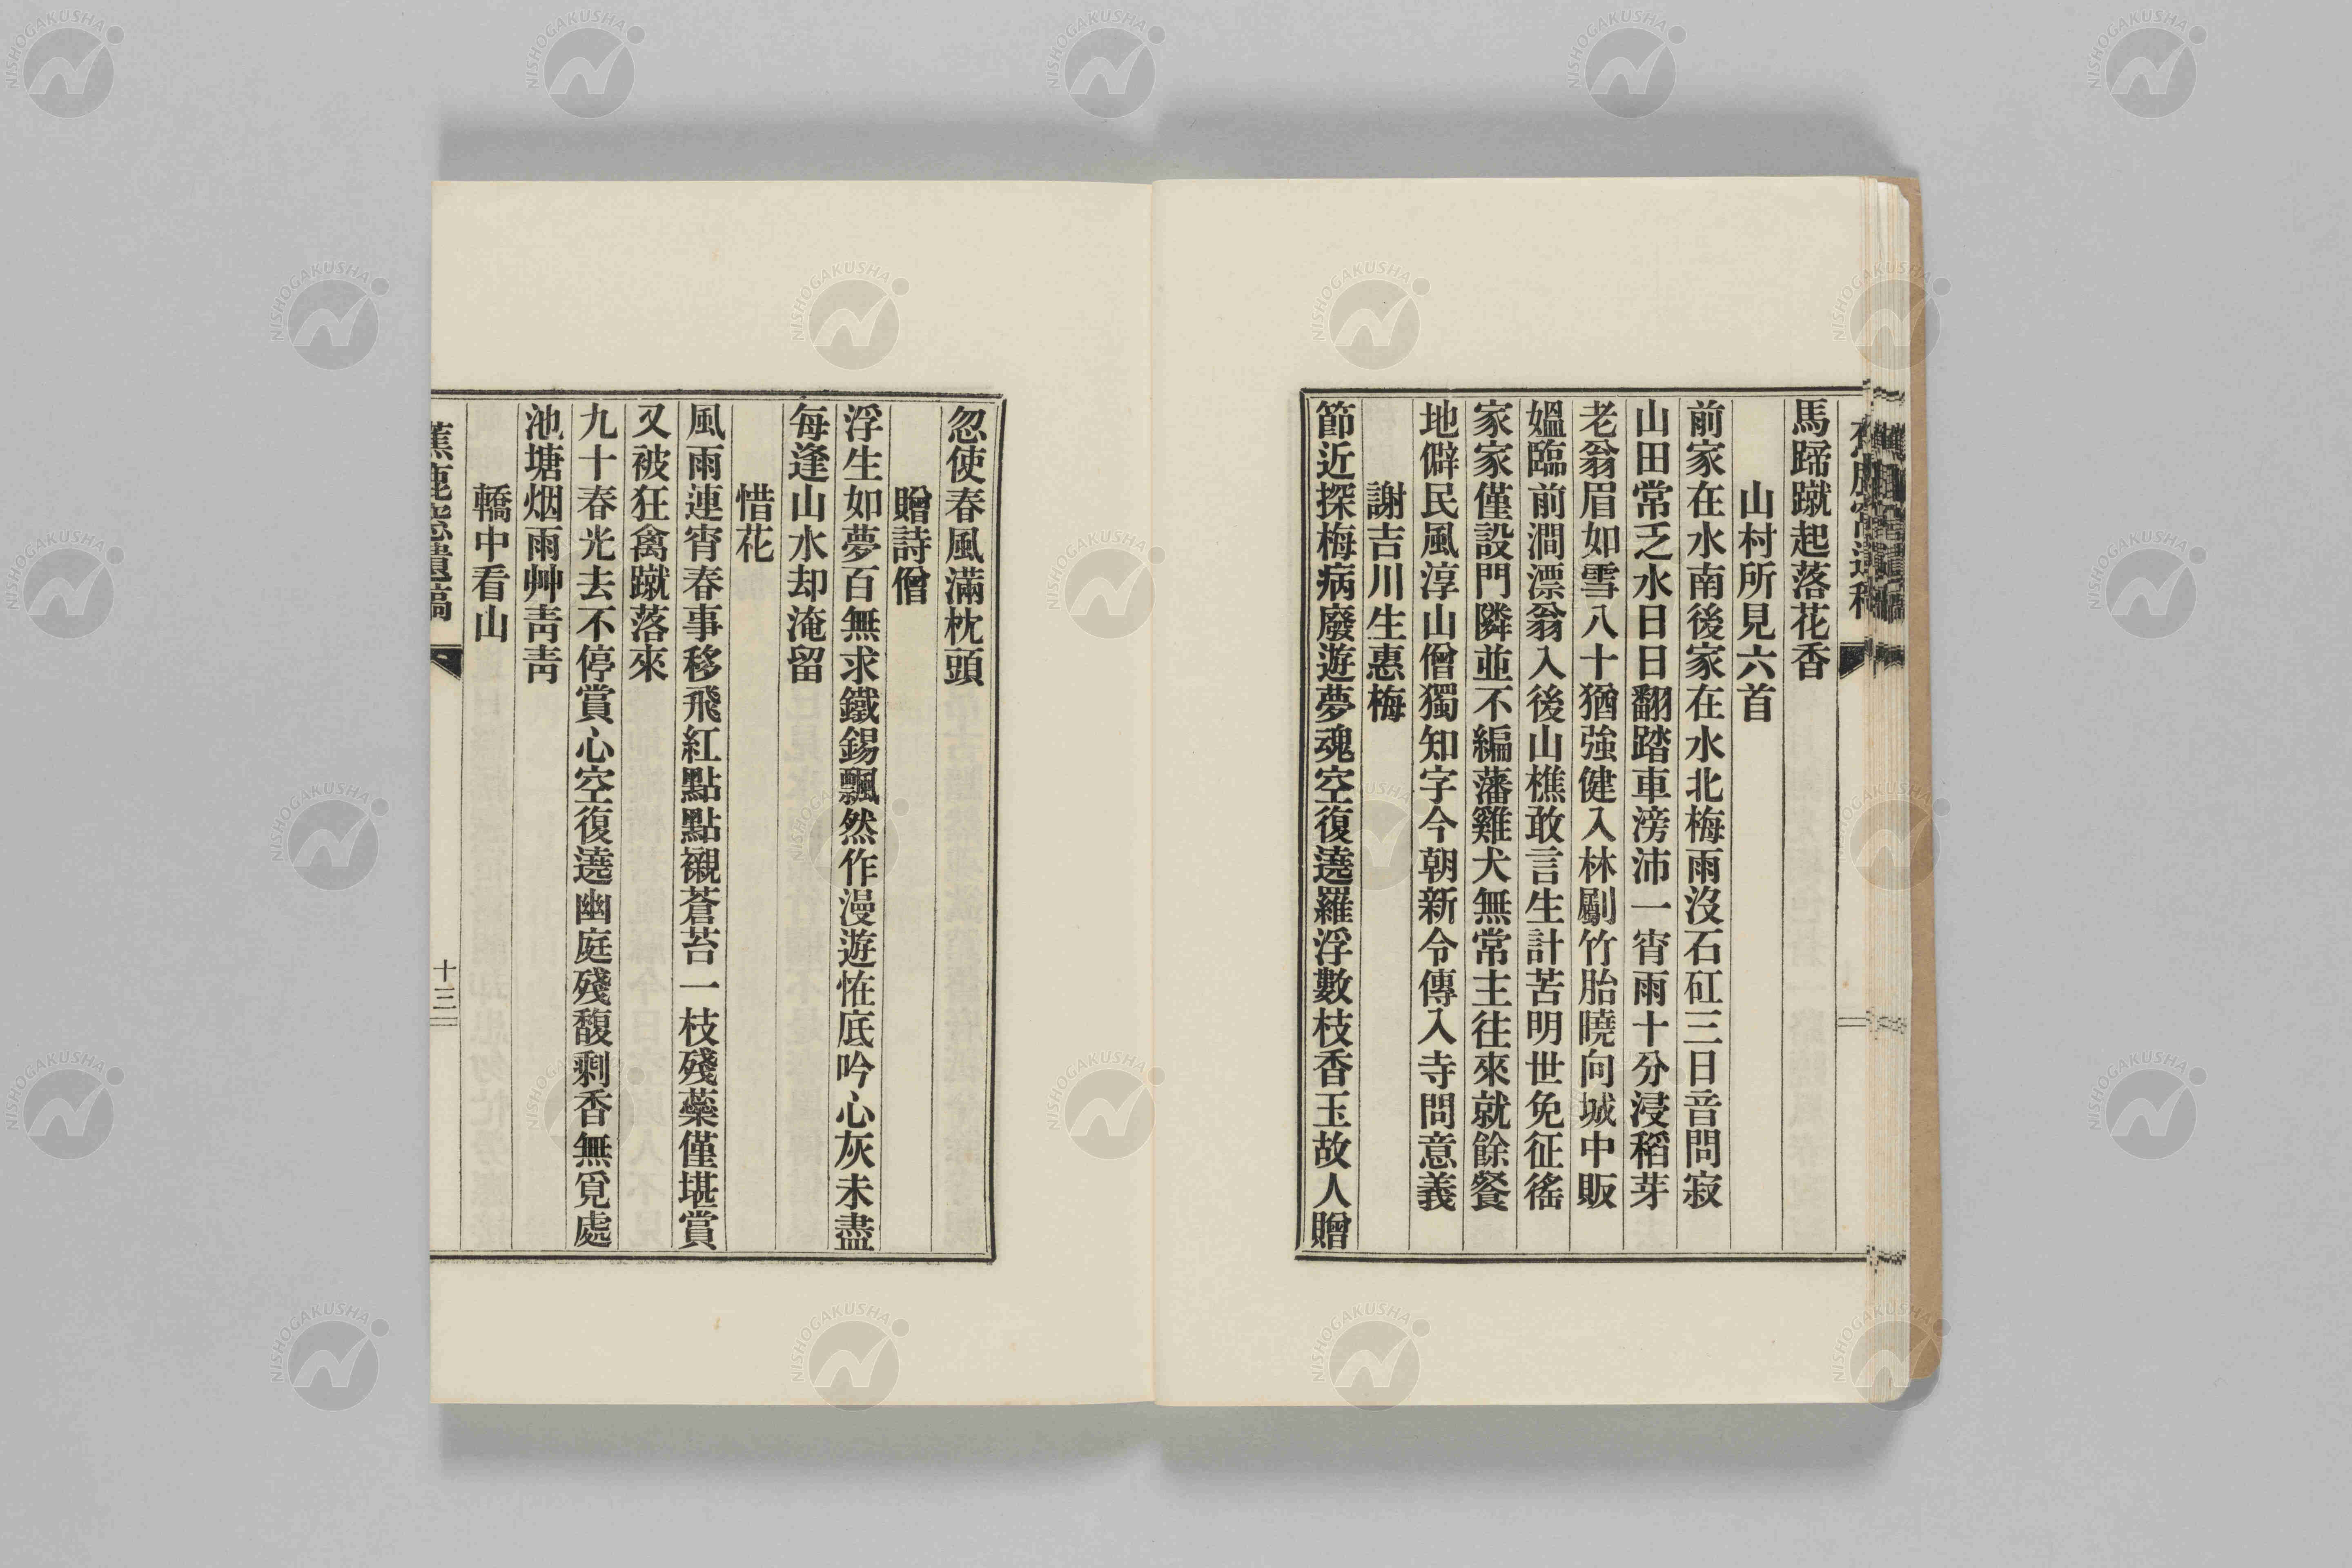 馬蹄蹴起落花香
山村所見六首
前家在水南後家在水北梅雨沒石矼三日音問寂
山田常乏水日日翻踏車滂沛一宵雨十分浸稻芽
老翁眉如雪八十猶強健入林劚竹胎曉向城中販
媼臨前澗漂翁入後山樵敢言生計苦明世免征徭
家家僅設門隣並不編藩雞犬無常主往來就餘餐
地僻民風淳山僧獨知字今朝新令傳入寺問意義
謝吉川生惠梅
節近探梅病廢遊夢魂空復遶羅浮數枝香玉故人贈
忽使春風滿枕頭
贈詩僧
浮生如夢百無求鐵錫飄然作漫遊恠底吟心灰未盡
每逢山水却淹留
惜花
風雨連宵春事移飛紅點點襯蒼苔一枝殘蘂僅堪賞
又被狂禽蹴落來
九十春光去不停賞心空復遶幽庭殘馥剩香無覓處
池塘烟雨艸靑靑
轎中看山
蕉鹿窓遺稿
十三
NISHOGAKUSHA